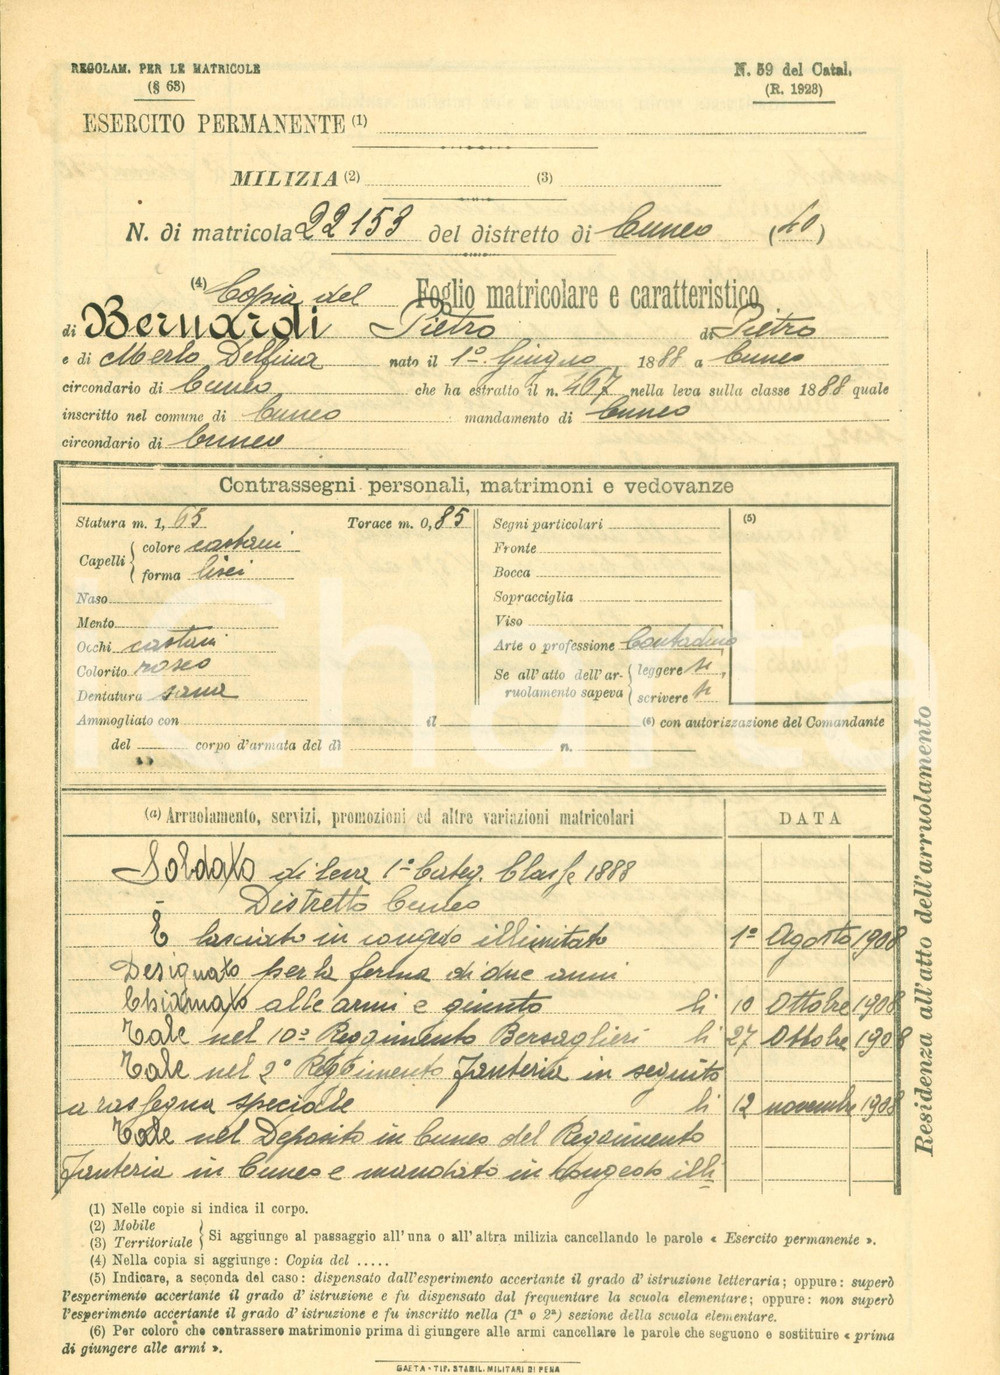 REGOLAM. PER LE MATRICOLE
(§ 63)
N. 59 del Catal.
(R. 1923)
ESERCITO PERMANENTE (1)
MILIZIA (2) (3)
N. di matricola 22153 del distretto di Cuneo (40)
(4) Copia del Foglio matricolare e caratteristico
di Bernardi Pietro di Pietro
e di Merlo Delfina nato il 1º Giugno 1888 a Cuneo
circondario di Cuneo che ha estratto il n. 467 nella leva sulla classe 1888 quale
inscritto nel comune di Cuneo mandamento di Cuneo
circondario di Cuneo
Contrassegni personali, matrimoni e vedovanze
Statura m. 1,65 Torace m. 0,85
Capelli colore castani
forma lisci
Naso
Mento
Occhi castani
Colorito roseo
Dentatura sana
Segni particolari
Fronte
Bocca
Sopracciglia
Viso
Arte o professione Contadino
Se all'atto dell'ar- leggere si,
ruolamento sapeva scrivere si
(5)
Ammogliato con il (6) con autorizzazione del Comandante
del corpo d'armata del dì n.
(a) Arruolamento, servizi, promozioni ed altre variazioni matricolari DATA
Soldato di leva 1ª Categ. Classe 1888
Distretto Cuneo
È lasciato in congedo illimitato 1º Agosto 1908
Designato per la ferma di due anni
Chiamato alle armi e giunto li 10 Ottobre 1908
Tale nel 10º Reggimento Bersaglieri li 27 Ottobre 1908
Tale nel 2º Reggimento Fanteria in seguito
a rassegna speciale li 12 novembre 1908
Tale nel Deposito in Cuneo del Reggimento
Fanteria in Cuneo e mandato in Congedo illi
Residenza all'atto dell'arruolamento
(1) Nelle copie si indica il corpo.
(2) Mobile
(3) Territoriale Si aggiunge al passaggio all'una o all'altra milizia cancellando le parole « Esercito permanente ».
(4) Nella copia si aggiunge : Copia del .....
(5) Indicare, a seconda del caso : dispensato dall'esperimento accertante il grado d'istruzione letteraria ; oppure : superò
l'esperimento accertante il grado d'istruzione e fu dispensato dal frequentare la scuola elementare ; oppure : non superò
l'esperimento accertante il grado d'istruzione e fu inscritto nella (1ª o 2ª) sezione della scuola elementare.
(6) Per coloro che contrassero matrimonio prima di giungere alle armi cancellare le parole che seguono e sostituire « prima
di giungere alle armi ».
GAETA - TIP. STABIL. MILITARI DI PENA